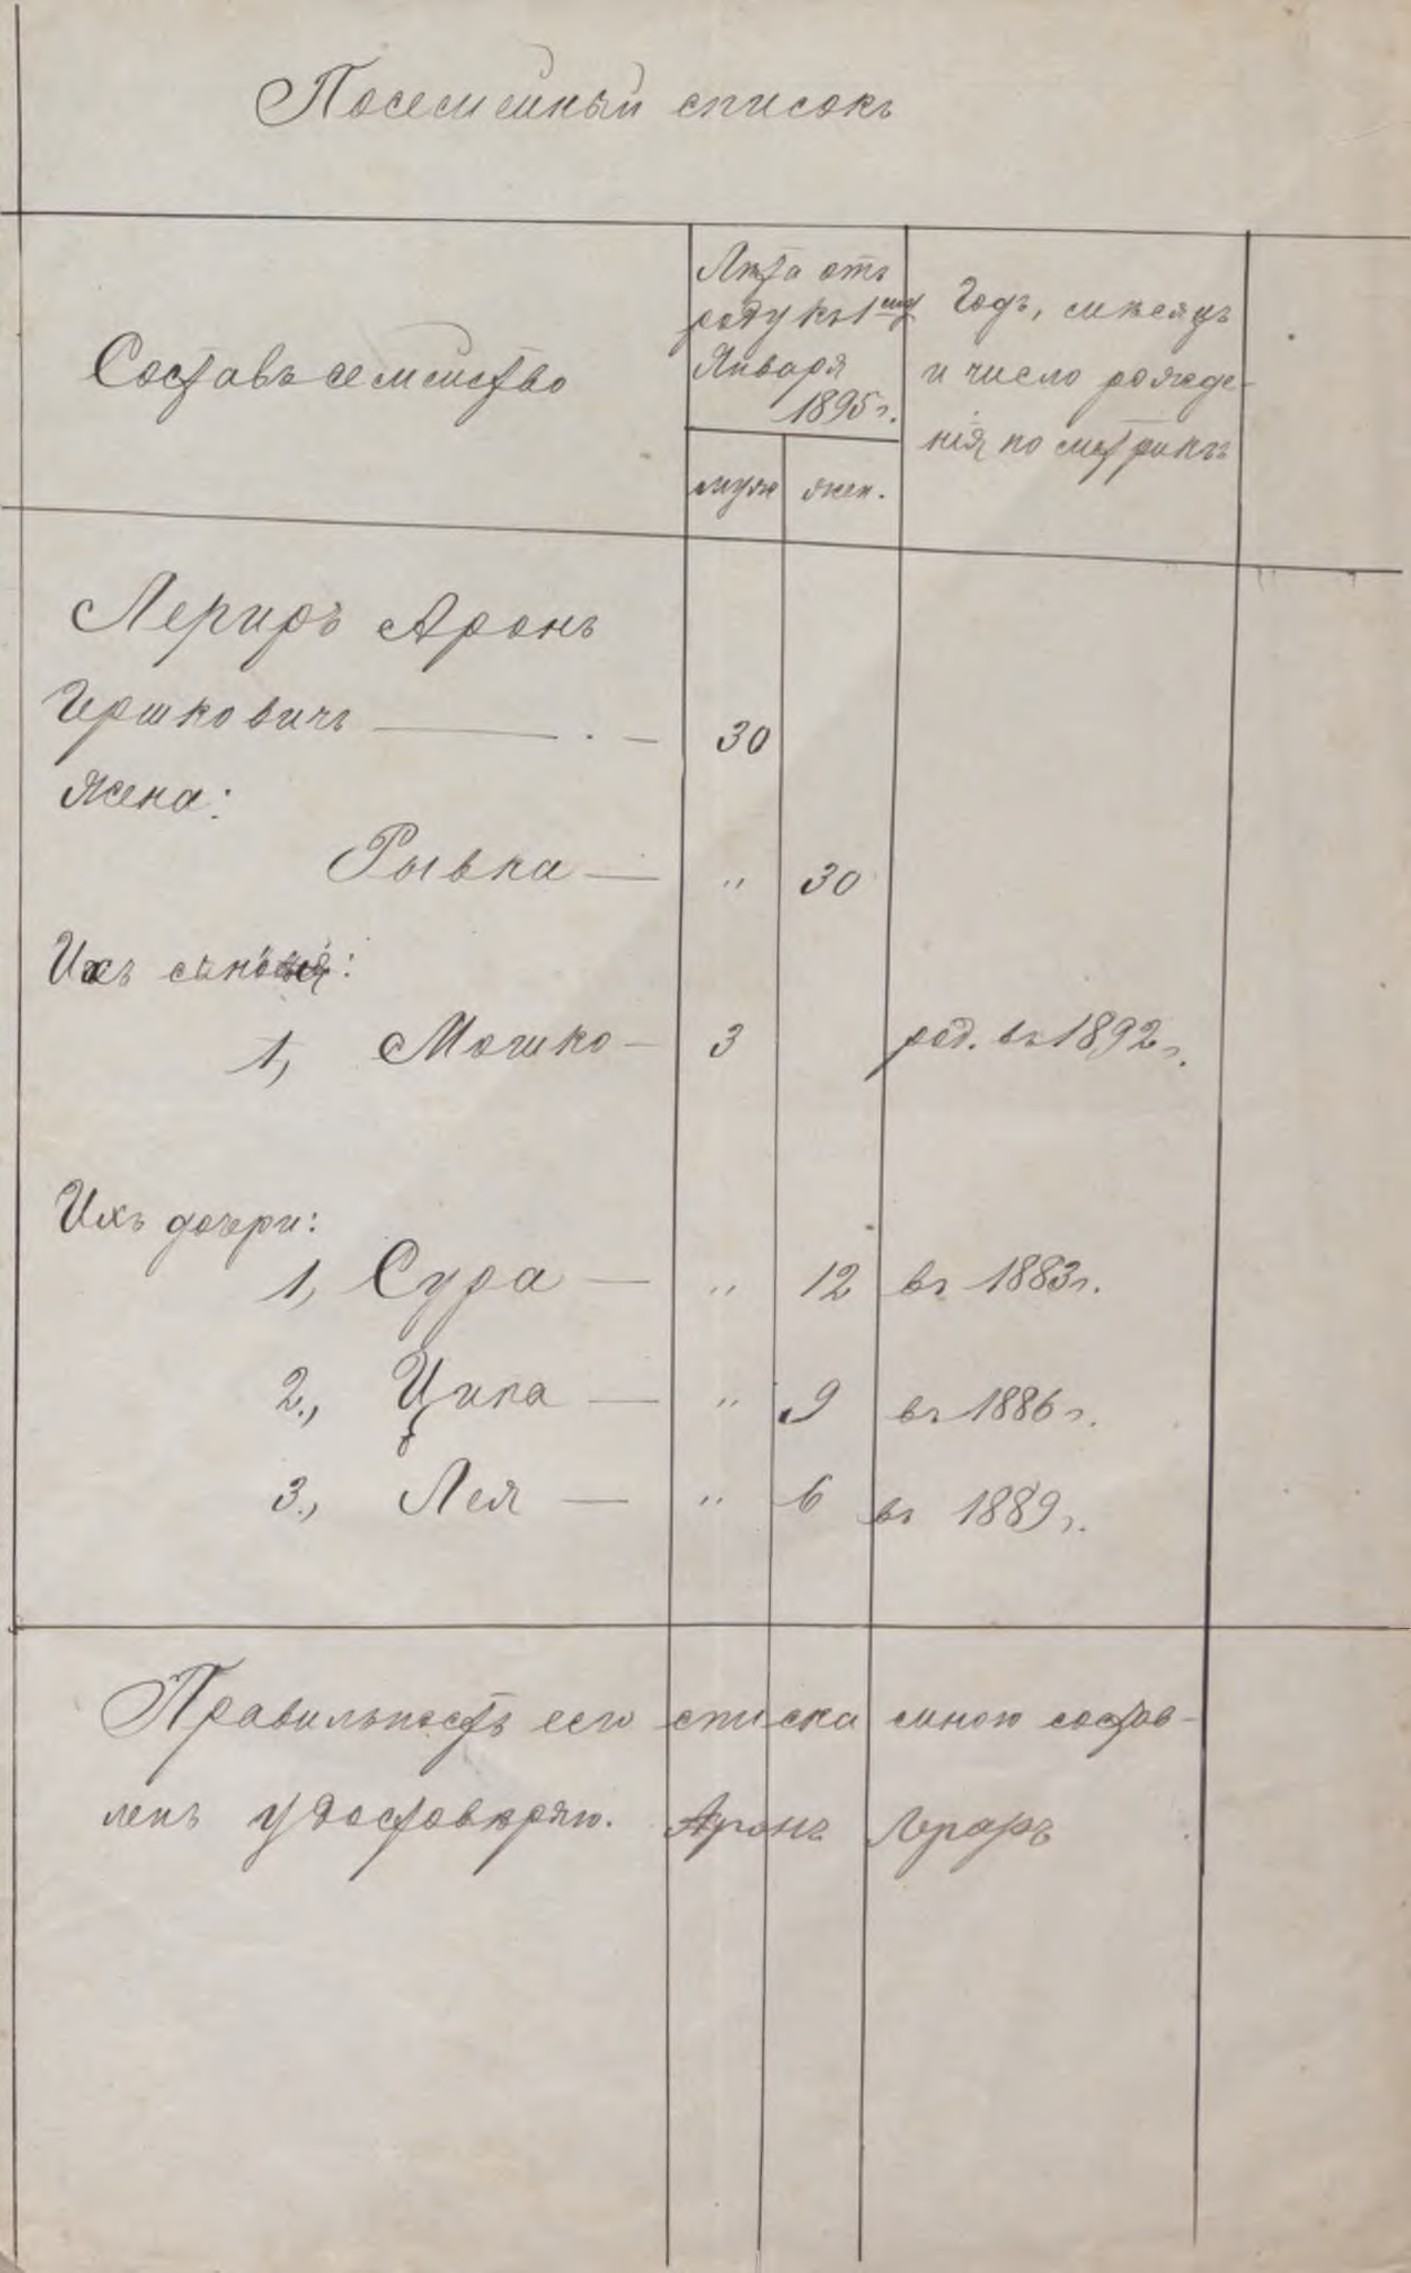 Посемейный списокъ
Составъ семейство
Лѣта отъ
роду къ 1му
Января
1895 г.
муж
жен.
Годъ, мѣсяцъ
и число рожде-
нія по метрикѣ
Лериръ Аронъ
Гершковичъ — 30
Жена:
Рывка — " 30
Ихъ сыновья:
1, Мошко — 3 род. въ 1892 г.
Ихъ дочери:
1, Сура — " 12 въ 1883 г.
2., Ципа — " 9 въ 1886 г.
3., Лея — " 6 въ 1889 г.
Правильность сего списка мною состав-
ленъ удостовѣряю. Аронъ